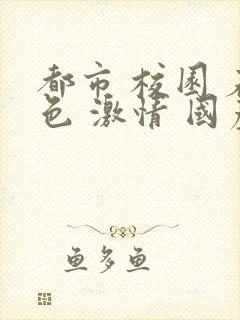 都市 校园 
色 激情 国
鱼多鱼